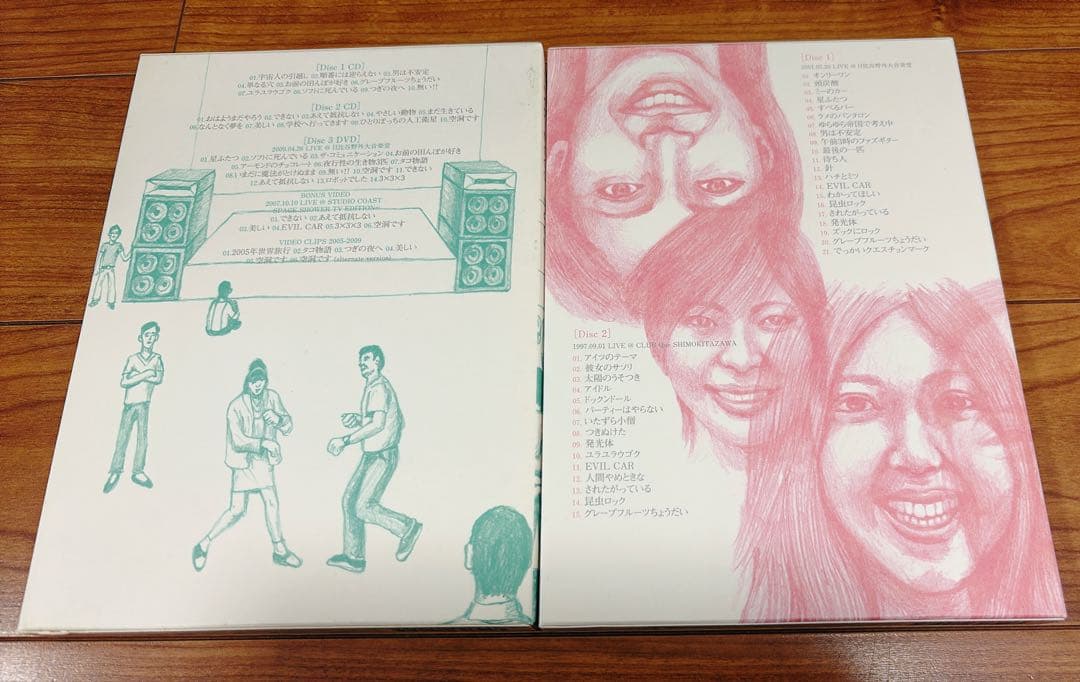 [Disc 1 CD]
01.宇宙人の引越し 02.順番には逆らえない 03.男は不安定
04.単なる穴 05.お前の田んぼが好き 06.グレープフルーツちょうだい
07.ユラユラウゴク 08.ソフトに死んでいる 09.つぎの夜へ 10.無い!!
[Disc 2 CD]
01.おはようまだやろう 02.できない 03.あえて抵抗しない 04.やさしい動物 05.まだ生きている
06.なんとなく夢を 07.美しい 08.学校へ行ってきます 09.ひとりぼっちの人工衛星 10.空洞です
[Disc 3 DVD]
2009.04.26 LIVE @ 日比谷野外大音楽堂
01.星ふたつ 02.ソフトに死んでいる 03.ザ・コミュニケーション 04.お前の田んぼが好き
05.アーモンドのチョコレート 06.夜行性の生き物3匹 07.タコ物語
08.いまだに魔法がとけぬまま 09.無い!! 10.空洞です 11.できない
12.あえて抵抗しない 13.ロボットでした 14.3×3×3
BONUS VIDEO
2007.10.10 LIVE @ STUDIO COAST
~SPACE SHOWER TV EDITION~
01.できない 02.あえて抵抗しない
03.美しい 04.EVIL CAR 05.3×3×3 06.空洞です
VIDEO CLIPS 2005-2009
01.2005年世界旅行 02.タコ物語 03.つぎの夜へ 04.美しい
05.空洞です 06.空洞です (alternate version)
[Disc 1]
LIVE @ 日比谷野外大音楽堂
01. オンリーワン
02. 頭炭酸
03. ミーのカー
04. 星ふたつ
05. すべるバー
06. ラメのパンタロン
07. ゆらゆら帝国で考え中
08. 男は不安定
09. 午前3時のファズギター
10. 最後の一匹
11. 待ち人
12. 針
13. ハチとミツ
14. EVIL CAR
15. わかってほしい
16. 昆虫ロック
17. されたがっている
18. 発光体
19. ズックにロック
20. グレープフルーツちょうだい
21. でっかいクエスチョンマーク
[Disc 2]
1997.09.01 LIVE @ CLUB Que SHIMOKITAZAWA
01. アイツのテーマ
02. 彼女のサソリ
03. 太陽のうそつき
04. アイドル
05. ドックンドール
06. パーティーはやらない
07. いたずら小僧
08. つきぬけた
09. 発光体
10. ユラユラウゴク
11. EVIL CAR
12. 人間やめときな
13. されたがっている
14. 昆虫ロック
15. グレープフルーツちょうだい